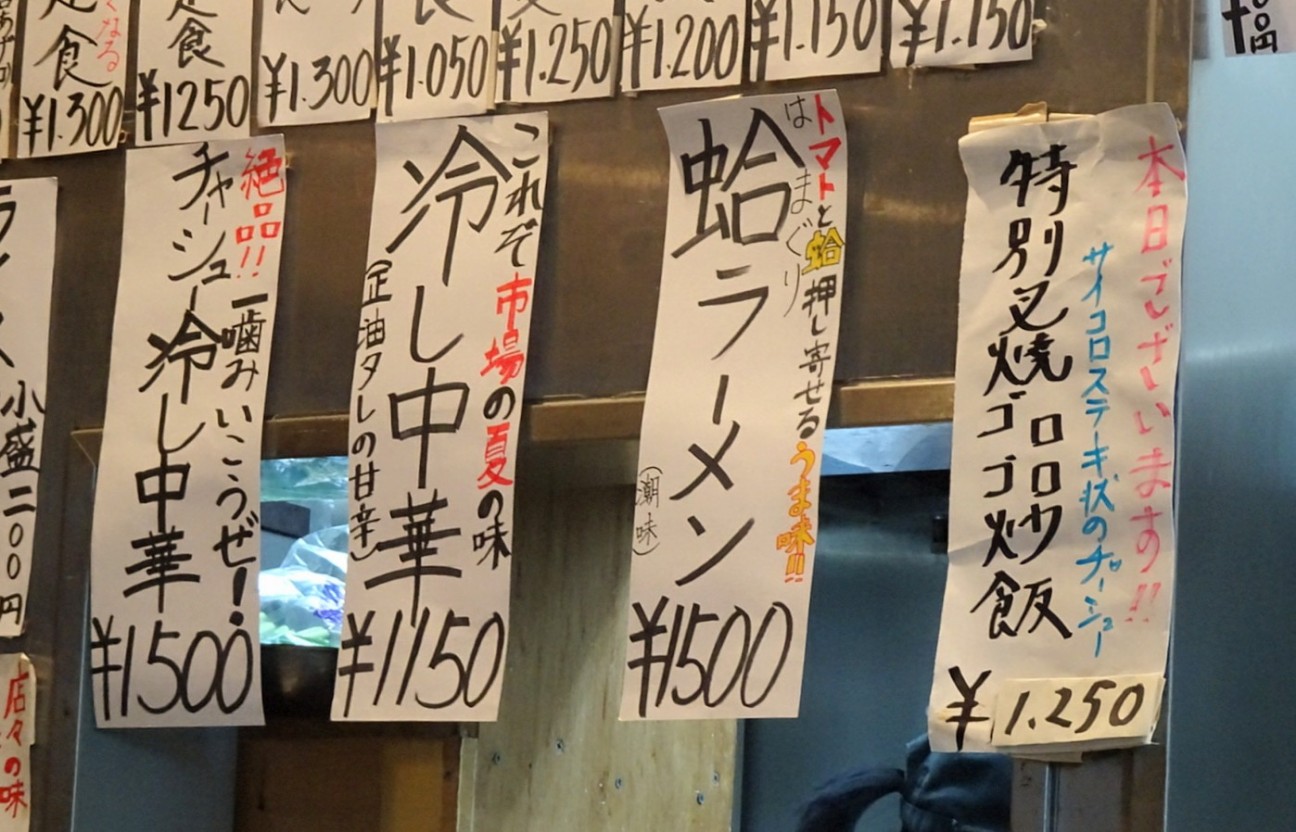 なる
定食
¥1.300
定食
¥1250
¥1.300
¥1.050
¥1.250
¥1.200
¥1.150
¥1.150
円
本日ございます!!
サイコロステーキ状のチャーシュー
特別叉焼ゴロゴロ炒飯
¥1.250
トマトと蛤押し寄せるうま味!!
はまぐり
蛤ラーメン
(潮味)
¥1500
これぞ市場の夏の味
冷し中華
(正油タレの甘辛)
¥1150
絶品!!一噛みいこうぜ!
チャーシュー冷し中華
¥1500
小盛二〇〇円
店々の味